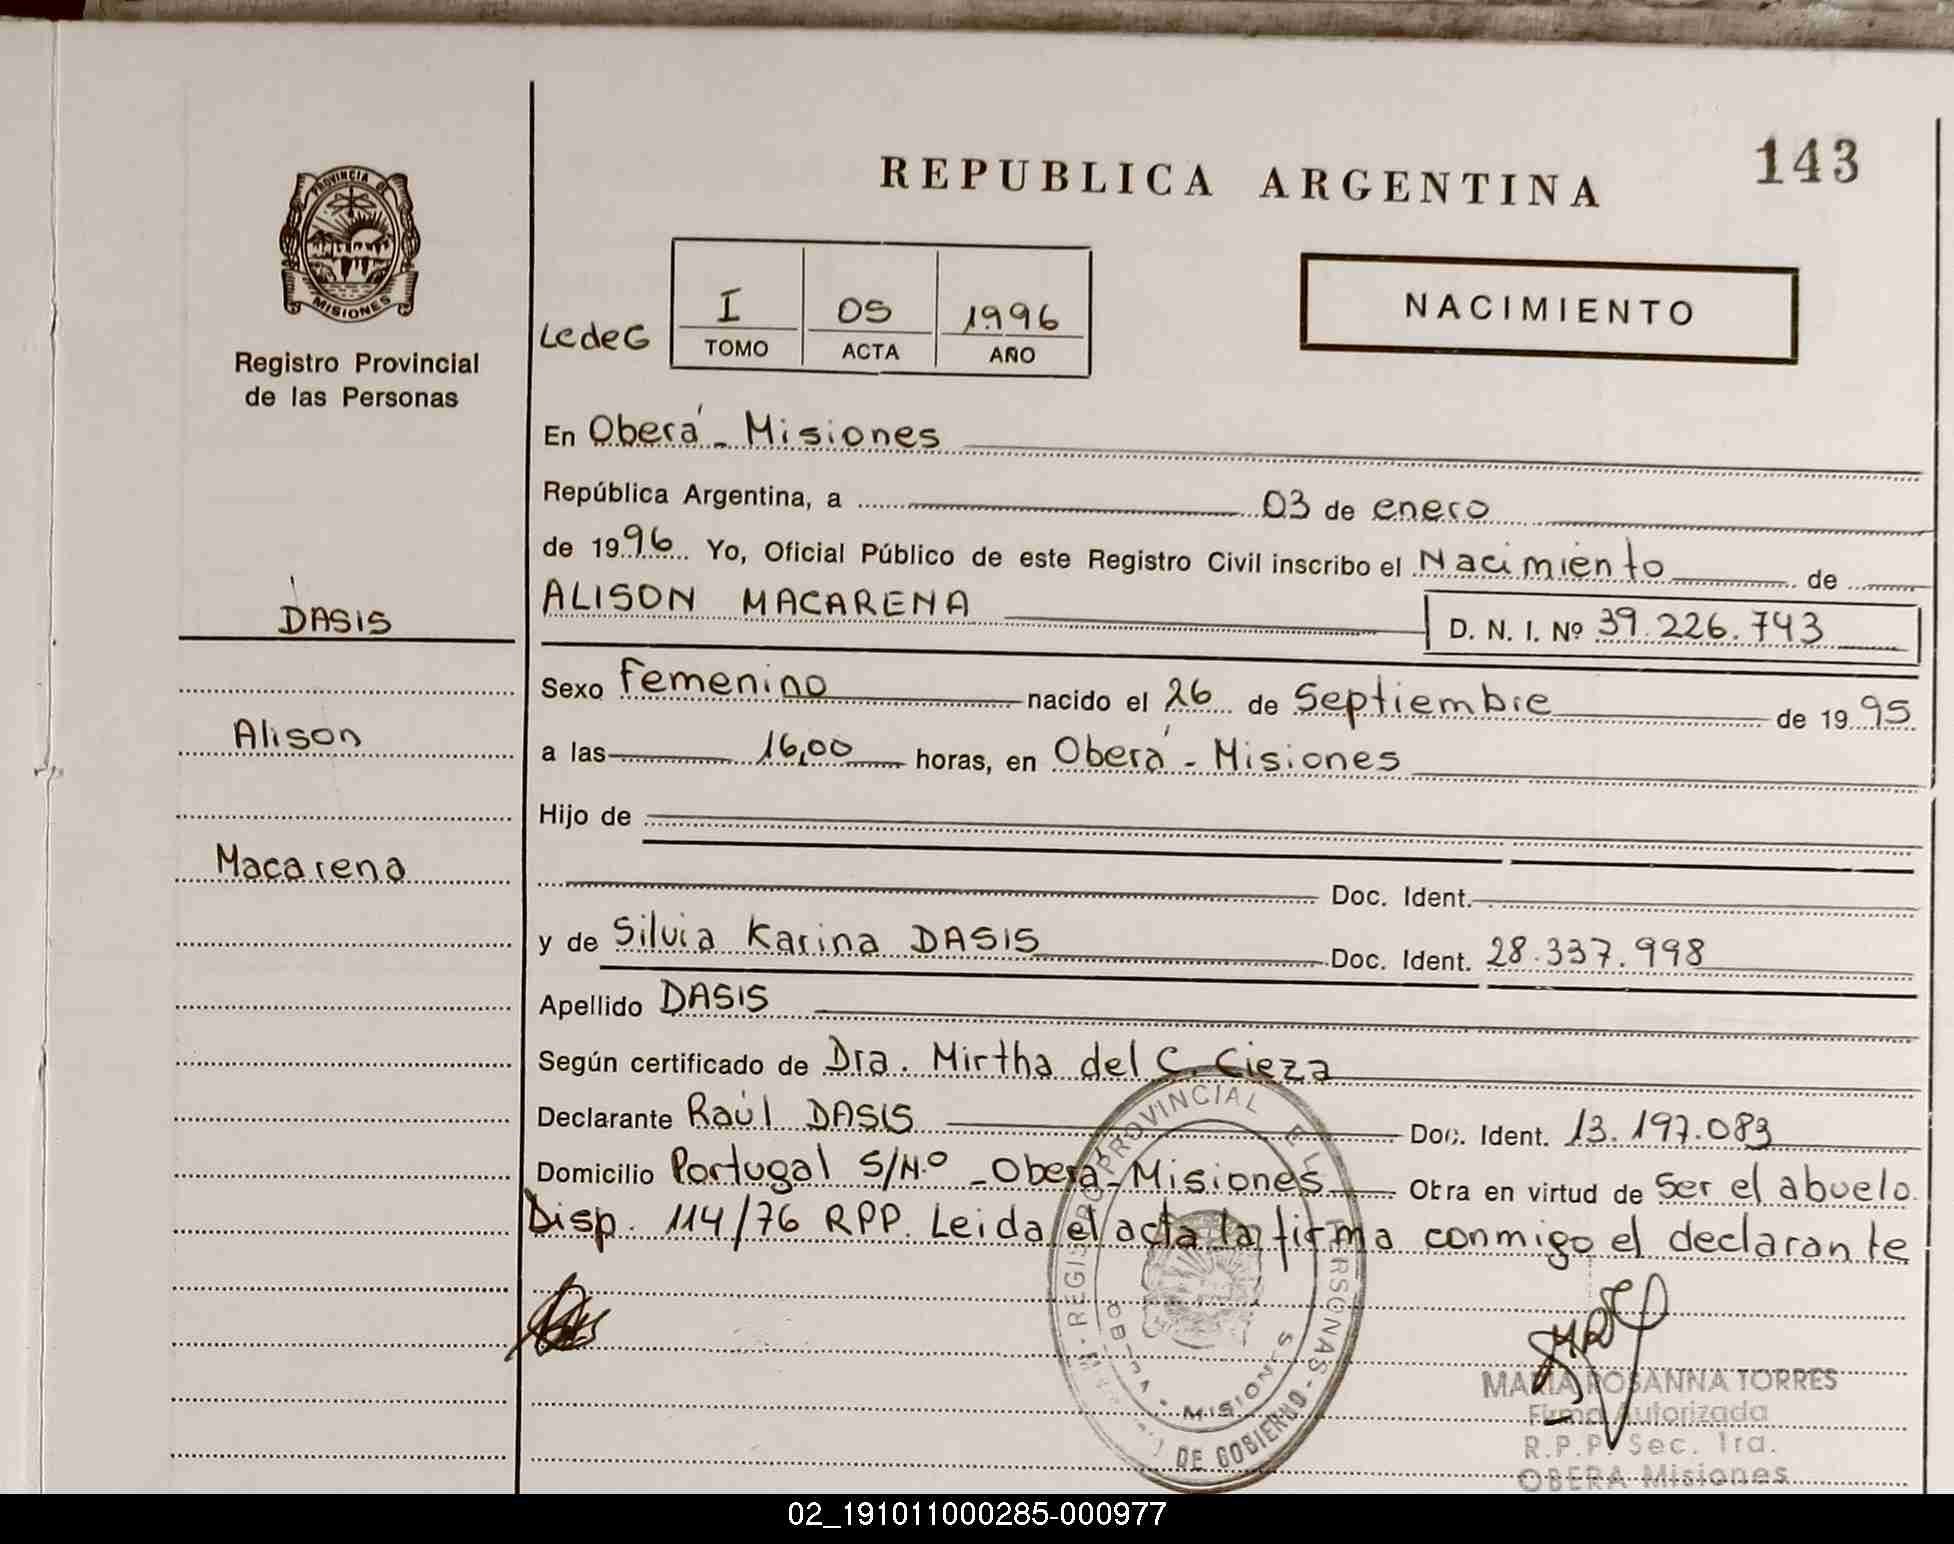 REPUBLICA ARGENTINA
143
PROVINCIA DE
MISIONES
Registro Provincial
de las Personas
LedeG
I
05
1996
TOMO
ACTA
AÑO
NACIMIENTO
En Oberá - Misiones
República Argentina, a 03 de enero
de 1996 Yo, Oficial Público de este Registro Civil inscribo el Nacimiento de
DASIS
ALISON MACARENA
D. N. I. Nº 39.226.743
Sexo Femenino nacido el 26 de Septiembre de 1995
Alison
a las 16,00 horas, en Oberá - Misiones
Hijo de
Macarena
Doc. Ident.
y de Silvia Karina DASIS Doc. Ident. 28.337.998
Apellido DASIS
Según certificado de Dra. Mirtha del C. Cieza
Declarante Raúl DASIS Doc. Ident. 13.197.083
Domicilio Portugal S/N.º - Oberá - Misiones Obra en virtud de Ser el abuelo.
Disp. 114/76 RPP. Leida el acta la firma conmigo el declarante
REGISTRO PROVINCIAL PERSONAS
MISIONES
DE GOBIERNO
MARIA ROSANNA TORRES
Firma Autorizada
R.P.P. Sec. 1ra.
OBERA Misiones
02_191011000285-000977